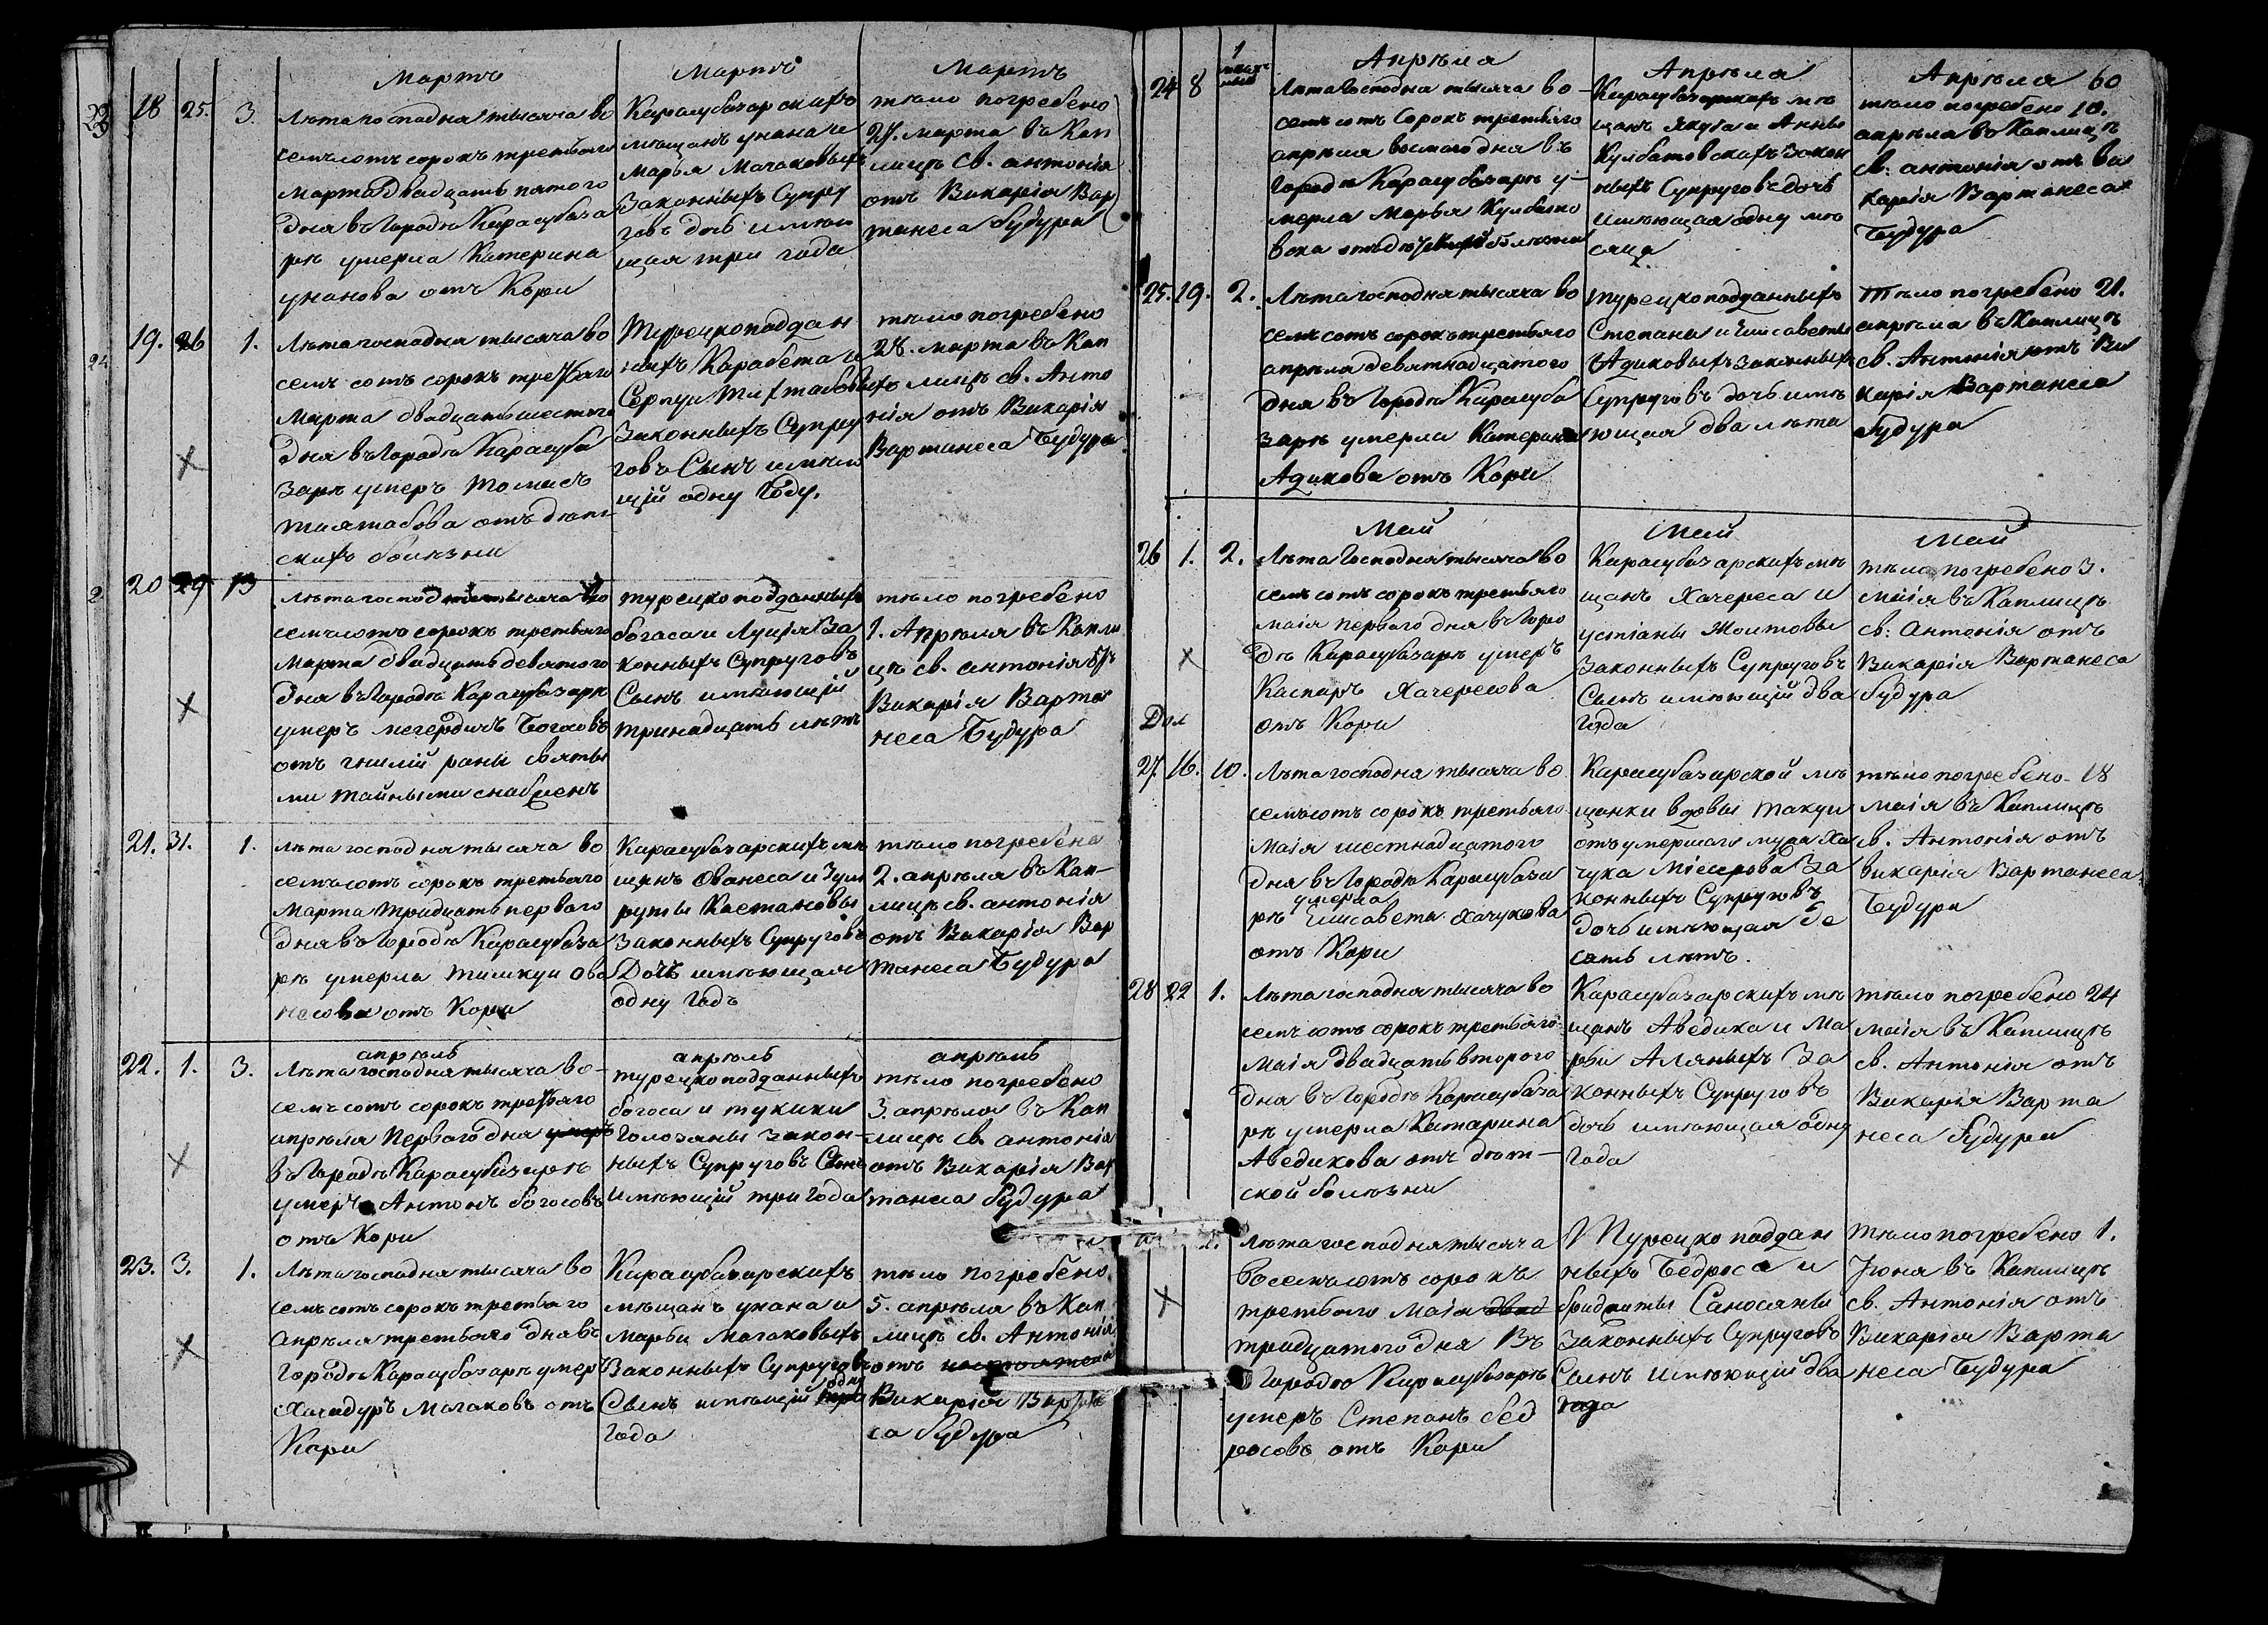 Мартъ
18 25. 3.
Лѣта господня тысяча во
семъсотъ сорокъ третьяго
марта двадцать пятого
дня въ Городѣ Карасубаза
рѣ умерла Катерина
унанова отъ Кори
Мартъ
Карасубазарскихъ
мѣщанъ унана и
Марья Малаковыхъ
Законныхъ Супру
говъ дочь имѣю
щая три года
Мартъ
тѣло погребено
27. марта въ Кап
лицѣ св. антонія
отъ Викарія Вар
танеса Будура
19. 26 1.
Лѣта господня тысяча во
семъ сотъ сорокъ третьяго
Марта двадцать шестого
дня въ Городѣ Карасуба
зарѣ умеръ Томасъ
отъ дѣт
скихъ болѣзни
Турецкоподдан
ныхъ Карабета и
Законныхъ Супру
говъ Сынъ имѣю
щій одну Году.
тѣло погребено
28. марта въ Кап
лицѣ св. Анто
нія отъ Викарія
Вартанеса Будура
20 29 13
Лѣта господня тысяча во
семъсотъ сорокъ третьяго
Марта двадцать девятого
дня въ Городѣ Карасубазарѣ
умеръ мегердичъ Богосовъ
отъ гнилій раны святы
ми тайными снабженъ
турецкоподданныхъ
богоса и Луція За
конныхъ Супруговъ
Сынъ имѣющій
тринадцать лѣтъ
тѣло погребено
1. Апрѣля въ Капли
цѣ св. антонія отъ
Викарія Варта
неса Будура
21. 31. 1.
лѣта господня тысяча во
семъсотъ сорокъ третьяго
марта тридцать первого
дня въ Городѣ Карасубаза
рѣ умерла Ова
несова отъ Кори
Карасубазарскихъ мѣ
щанъ Ованеса и Зум
руты Кастановы
Законныхъ Супруговъ
Дочь имѣющая
одну годъ
тѣло погребено
2. апрѣля въ Кап-
лицѣ св. антонія
отъ Викарія Вар
танеса Будура
22. 1. 3.
апрѣль
Лѣта господня тысяча во-
семъ сотъ сорокъ третьяго
апрѣля Первого дня умеръ
въ Городѣ Карасубазарѣ
умеръ Антонъ богосовъ
отъ Кори
апрѣль
турецкоподданныхъ
богоса и тукики
Голозаны закон-
ныхъ Супруговъ Сынъ
имѣющій три года
апрѣль
тѣло погребено
3 апрѣля въ Кап
лицѣ св. антонія
отъ Викарія Вар
танеса Будура
23. 3. 1.
Лѣта господня тысяча во
семъ сотъ сорокъ третьяго
Апрѣля третьяго дня въ
Городѣ Карасубазарѣ умеръ
Хачадуръ Малаковъ отъ
Кори
Карасубазарскихъ
мѣщанъ унана и
марьи Малаковыхъ
Законныхъ Супруговъ
Сынъ имѣющій одну
года
тѣло погребено
5. апрѣля въ Кап
лицѣ св. Антонія
отъ
Викарія Вартане
са Будура
24 8 1
Апрѣля
Лѣта Господня тысяча во-
семъ сотъ Сорокъ третьяго
апрѣля восмого дня въ
Городѣ Карасубазарѣ у-
мерла Марья Кулбатко
вска отъ дѣтскихъ болѣзни
Апрѣля
Карасубазарскихъ мѣ
щанъ Якуба и Анны
Кулбатовскихъ закон
ныхъ Супруговъ дочь
имѣющая одну мѣ
сяца
Апрѣля 60
тѣло погребено 10.
апрѣля въ Каплицѣ
св. антонія отъ Ви
карія Вартанеса
Будура
25. 19. 2.
Лѣта господня тысяча во
семъ сотъ сорокъ третьяго
апрѣля девятнадцатого
дня въ Городѣ Карасуба
зарѣ умерла Катерина
Адикова отъ Кори
турецкоподданныхъ
Степана и Елисаветы
Адиковыхъ законныхъ
Супруговъ дочь имѣ
ющая два лѣта
Тѣло погребено 21.
апрѣля въ Каплицѣ
св. Антонія отъ Ви
карія Вартанеса
Будура
26 1. 2.
Май
Лѣта Господня тысяча во
семъ сотъ сорокъ третьяго
маія первого дня въ Горо
дѣ Карасубазарѣ умеръ
Каспаръ Хачересова
отъ Кори
Май
Карасубазарскихъ мѣ
щанъ Хачереса и
устіаны Жоитовы
Законныхъ Супруговъ
Сынъ имѣющій два
года
Май
тѣло погребено 3.
маія въ Каплицѣ
св: Антонія отъ
Викарія Вартанеса
Будура
27. 16. 10.
Лѣта господня тысяча во
семъсотъ сорокъ третьяго
Маія шестнадцатого
дня въ Городѣ Карасубаза
рѣ умерла Елисавета Хачукова
отъ Кори
Карасубазарской мѣ
щанки вдовы Такуи
отъ умершаго мужа Ха
чука За
конныхъ Супруговъ
дочь имѣющая де
сять лѣтъ.
тѣло погребено 18
маія въ Каплицѣ
св. Антонія отъ
викарія Вартанеса
Будура
28 22 1.
Лѣта господня тысяча во
семъ сотъ сорокъ третьяго
Маія двадцать второго
дня въ Городѣ Карасубаза
рѣ умерла Катарина
Аведикова отъ дѣт-
ской болѣзни
Карасубазарскихъ мѣ
щанъ Аведика и Ма
рьи Аляныхъ За
конныхъ Супруговъ
дочь имѣющая одну
Года
тѣло погребено 24
маія въ Каплицѣ
св. Антонія отъ
Викарія Варта
неса Будура
Лѣта господня тысяча
Восемъсотъ сорокъ
третьяго Маія двад
тридцатого дня Въ
Городѣ Карасубазарѣ
умеръ Степанъ бед
росовъ отъ Кори
Турецко поддан
ныхъ Бедроса и
бридиты Саносяны
Законныхъ Супруговъ
Сынъ имѣющій два
года
Тѣло погребено 1.
Іюня въ Каплицѣ
св. Антонія отъ
Викарія Варта
неса Будура